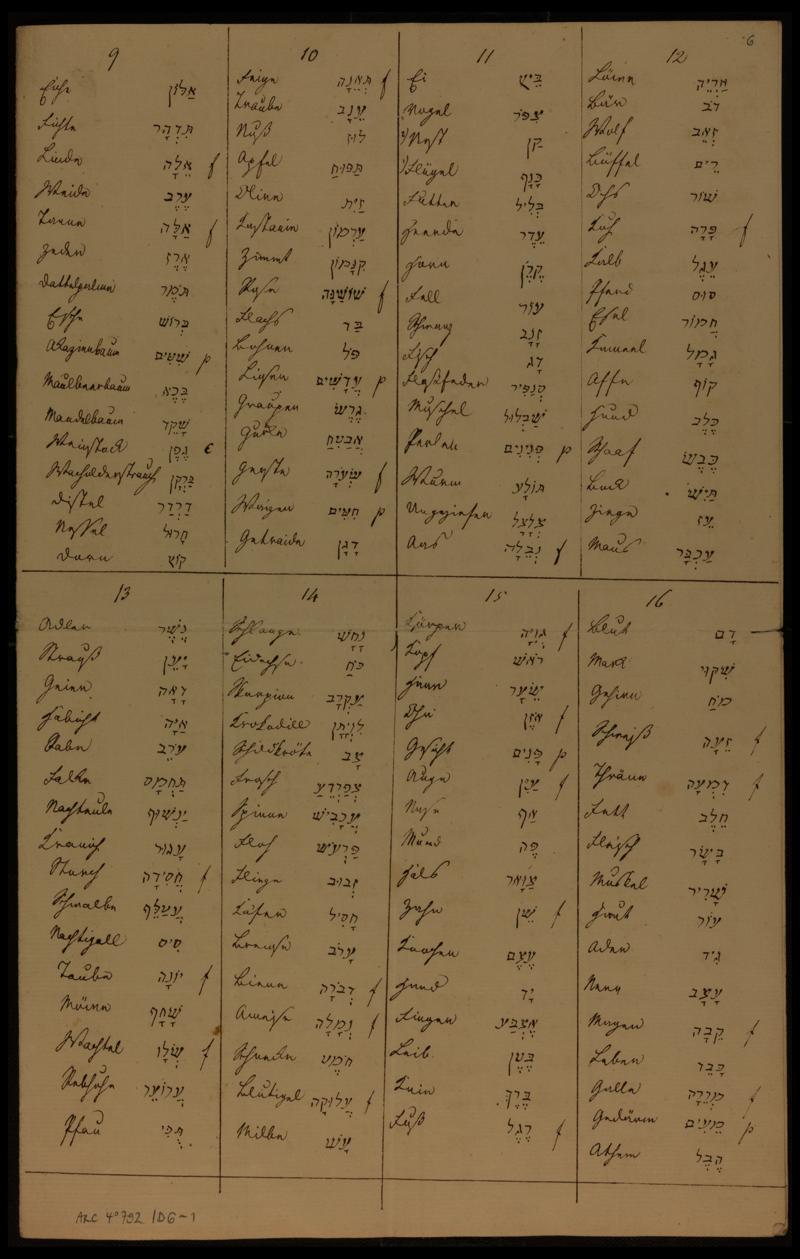 6
9
Eiche אַלּוֹן
Fichte תִּדְהָר
Linde אֵלָה f
Weide עֲרָב
Tanne אַלָּה f
Zeder אֶרֶז
Dattelpalme תֹּמֶר
Esche בְּרוֹשׁ
Akazienbaum שִׁטִּים p
Maulbeerbaum בָּכָא
Mandelbaum שָׁקֵד
Weinstock גֶּפֶן c
Wacholderstrauch בַּרְקָן
Distel דַּרְדַּר
Nessel חָרוּל
Dorn קוֹץ
10
Feige תְּאֵנָה f
Traube עֵנָב
Nuß לוּז
Apfel תַּפּוּחַ
Olive זַיִת
Kastanie עַרְמוֹן
Zimmt קִנָּמוֹן
Rose שׁוֹשַׁנָּה f
Flachs בַּד
Bohnen פּוֹל
Linsen עֲדָשִׁים p
Graupen גֶּרֶשׂ
Gurke אֲבַטִּחַ
Gerste שְׂעֹרָה f
Weizen חִטִּים p
Getraide דָּגָן
11
Ei בֵּיץ
Vogel צִפֹּר
Nest קֵן
Flügel כָּנָף
Futter בְּלִיל
Heerde עֵדֶר
Horn קֶרֶן
Fell עוֹר
Schwanz זָנָב
Fisch דָּג
Floßfeder סְנַפִּיר
Muschel שַׁבְּלוּל
Perlen פְּנִינִים p
Wurm תּוֹלָע
Ungeziefer צְלָצַל
Aas נְבֵלָה f
12
Löwe אַרְיֵה
Bär דֹּב
Wolf זְאֵב
Büffel רֵים
Ochs שׁוֹר
Kuh פָּרָה f
Kalb עֵגֶל
Pferd סוּס
Esel חֲמוֹר
Kameel גָּמָל
Affe קוֹף
Hund כֶּלֶב
Schaaf כֶּבֶשׂ
Bock תַּיִשׁ
Ziege עֵז
Maus עַכְבָּר
13
Adler נֶשֶׁר
Strauß יָעֵן
Geier דָּאָה
Habicht אַיָּה
Rabe עֹרֵב
Falke תַּחְמָס
Nachteule יַנְשׁוּף
Kranich עָגוּר
Storch חֲסִידָה f
Schwalbe עֲטַלֵּף
Nachtigall סִיס
Taube יוֹנָה f
Möwe שָׁחָף
Wachtel שְׂלָו f
Rebhuhn עֲרוֹעֵר
Pfau תֻּכִּי
14
Schlange נָחָשׁ
Eidechse כֹּחַ
Skorpion עַקְרָב
Krokodill לִוְיָתָן
Schildkröte צָב
Frosch צְפַרְדֵּעַ
Spinne עַכָּבִישׁ
Floh פַּרְעֹשׁ
Fliege זְבוּב
Käfer חָסִיל
Bremse עָרֹב
Biene דְּבֹרָה f
Ameise נְמָלָה f
Schnecke חֹמֶט
Blutigel עֲלוּקָה f
Milbe עָשׁ
15
Körper גְּוִיָּה f
Kopf רֹאשׁ
Haar שֵׂעָר
Ohr אֹזֶן f
Gesicht פָּנִים p
Auge עַיִן f
Nase אַף
Mund פֶּה
Hals צַוָּאר
Zahn שֵׁן f
Knochen עֶצֶם
Hand יָד
Finger אֶצְבַּע
Leib בֶּטֶן
Knie בֶּרֶךְ
Fuß רֶגֶל f
16
Blut דָּם
Mark שִׁקּוּי
Gehirn מֹחַ
Schweiß זֵעָה f
Thräne דִּמְעָה f
Fett חֵלֶב
Fleisch בָּשָׂר
Muskel שָׁרִיר
Haut עוֹר
Ader גִּיד
Nerv עָצָב
Magen קֵבָה f
Leber כָּבֵד
Galle מְרֵרָה f
Gedärm מֵעִים p
Athem הֶבֶל
ARC 4° 792 / D6-1